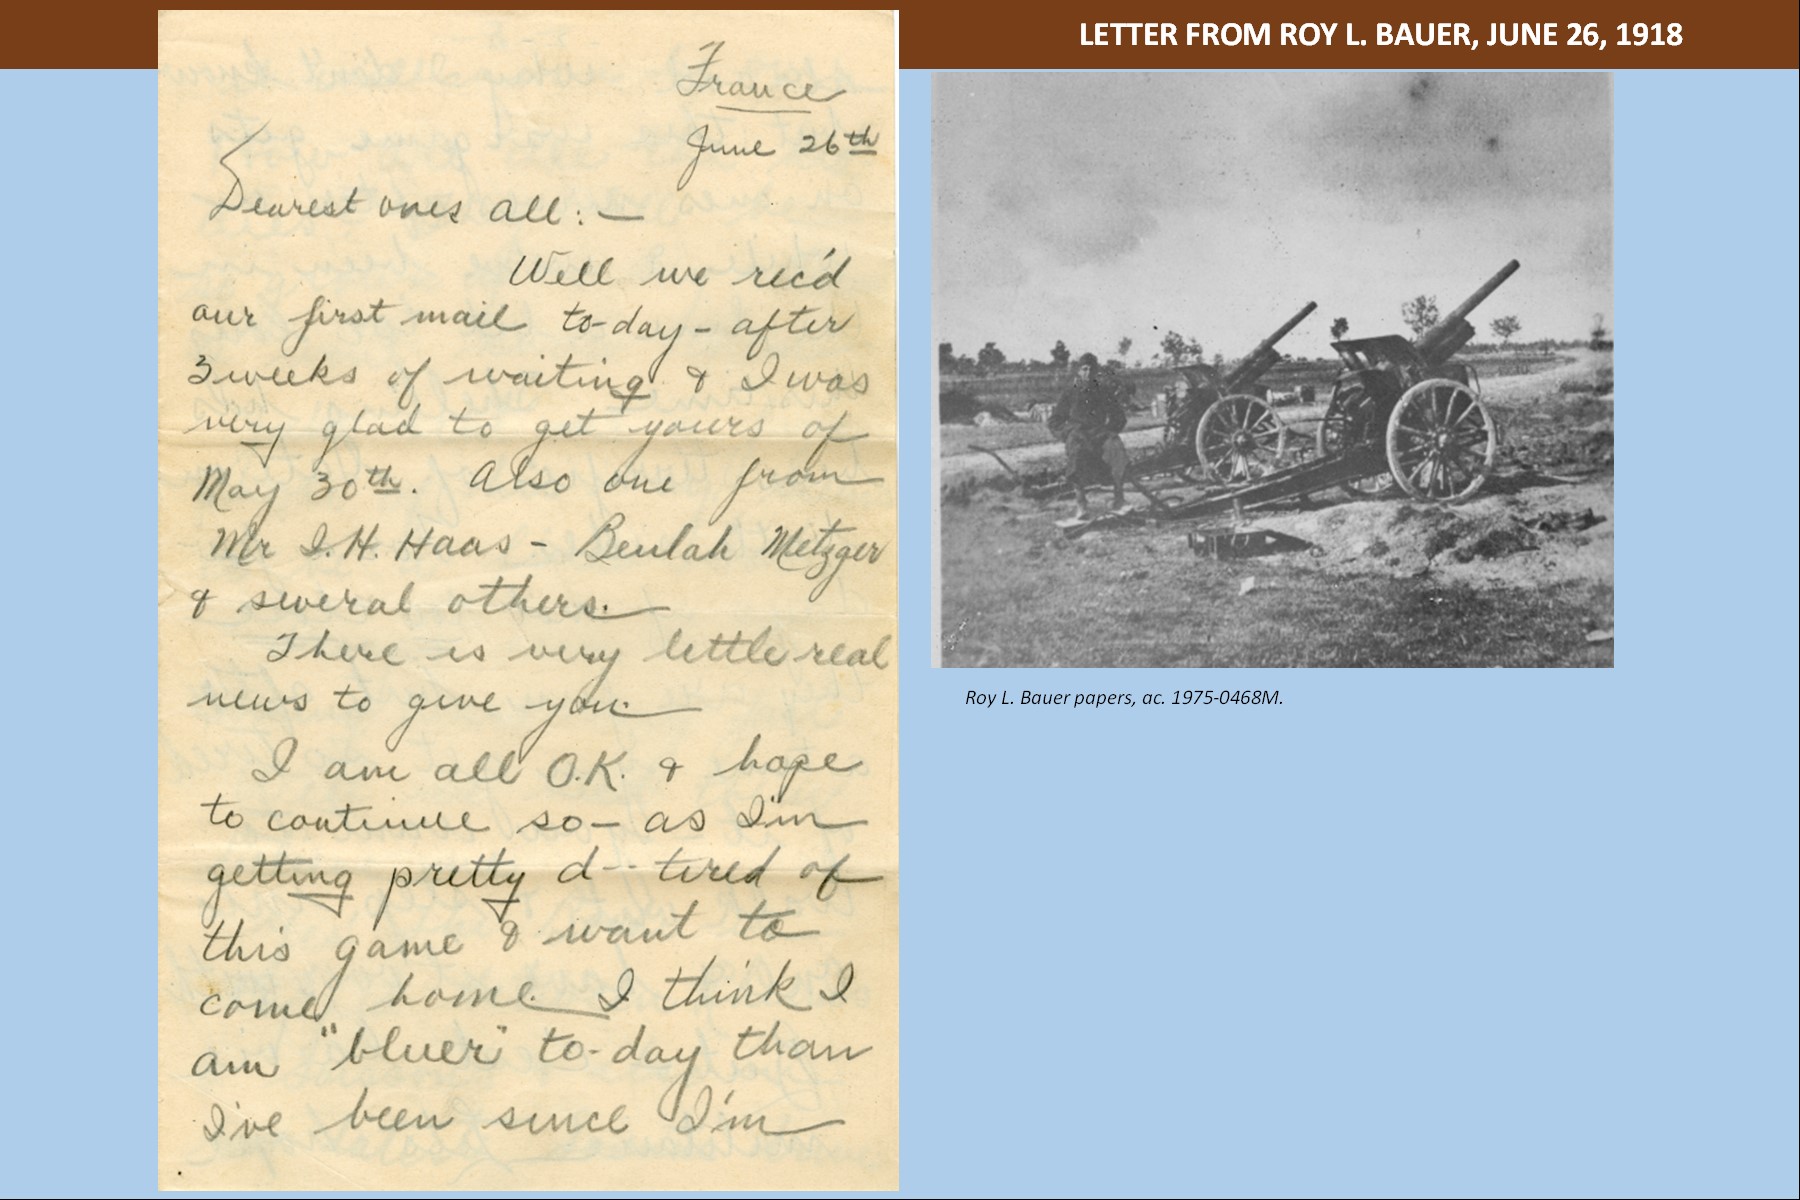 LETTER FROM ROY L. BAUER, JUNE 26, 1918
France
June 26th
Dearest ones all:—
Well we rec'd
our first mail to-day - after
3 weeks of waiting & I was
very glad to get yours of
May 30th. Also one from
Mr I.H. Haas - Beulah Metzger
& several others.
There is very little real
news to give you.
I am all O.K. & hope
to continue so— as I'm
getting pretty d-- tired of
this game & want to
come home. I think I
am "bluer" to-day than
I've been since I'm
Roy L. Bauer papers, ac. 1975-0468M.